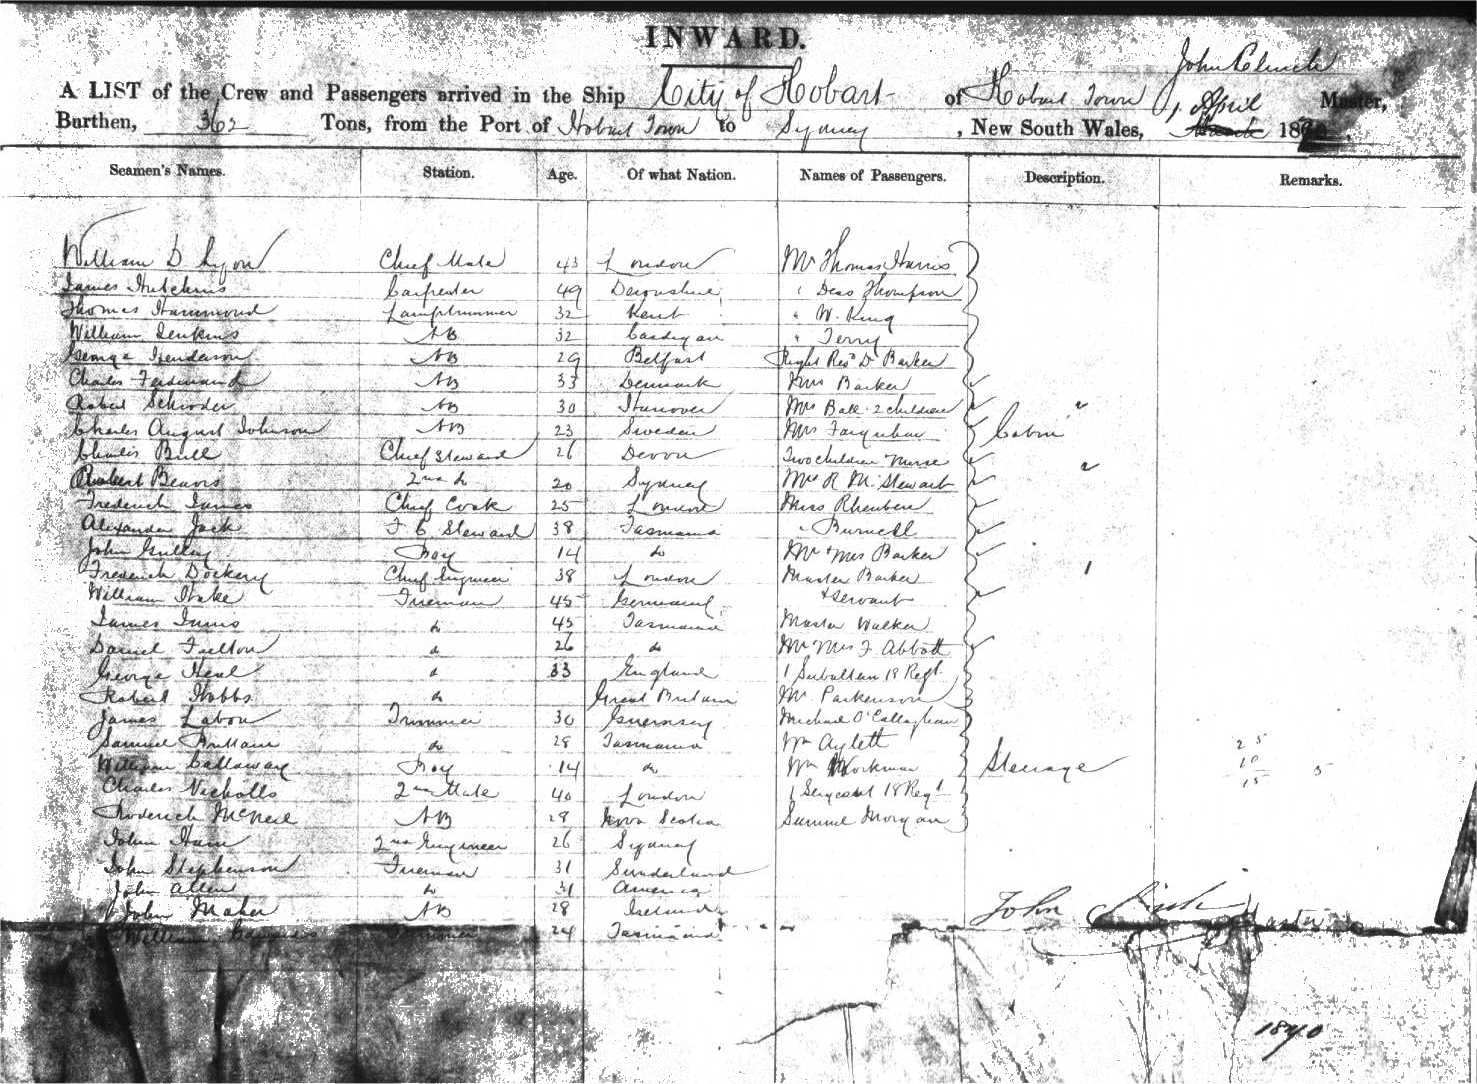 INWARD.
John Clinch
A LIST of the Crew and Passengers arrived in the Ship City of Hobart of Hobart Town Master,
Burthen, 362 Tons, from the Port of Hobart Town to Sydney, New South Wales, 1 April 1870.
Seamen's Names. Station. Age. Of what Nation. Names of Passengers. Description. Remarks.
William D Lyon Chief Mate 43 London Mr Thomas Harris
James Hutchins Carpenter 49 Devonshire " Deas Thompson
Thomas Hammond Lamptrimmer 32 Kent " W. King
William Jenkins AB 32 Cardigan " Terry
George Henderson AB 29 Belfast Right Revd Dr Barker
Charles Ferdinand AB 33 Denmark Mrs Barker
Robert Schroder AB 30 Hanover Mrs Ball 2 children 2
Charles August Johnson AB 23 Sweden Mrs Farquhar Cabin
Charles Bull Chief Steward 26 Devon Two children Nurse 2
Robert Beavis 2nd do 20 Sydney Mrs R M Stewart
Frederick James Chief Cook 25 London Miss
Alexander Jack F C Steward 38 Tasmania " Burnell
John Boy 14 do Mr & Mrs Barker
Frederick Dockery Chief Engineer 38 London Master Barker 1
William Hake Fireman 45 Germany & Servant
James Innis do 45 Tasmania Master Walker
Daniel Fulton do 26 do Mr Mrs F Abbott
George Heal do 33 England 1 Subaltern 18 Regt.
Robert Hobbs do Great Britain Mr Parkenson
James Labon Trimmer 30 Guernsey Michael O'Callaghan
Samuel do 28 Tasmania Wm Aylett 25
William Callaway Boy 14 do Wm Workman Steerage 10 5
Charles Nicholls 2nd Mate 40 London 1 Sergeant 18 Regt 15
Roderick McNeil AB 28 Nova Scotia Samuel Morgan
John Ham 2nd Engineer 26 Sydney
John Stephenson Fireman 31 Sunderland
John Allen do 31 America
John Maher AB 28 Ireland John Master
William Trimmer 24 Tasmania
1870